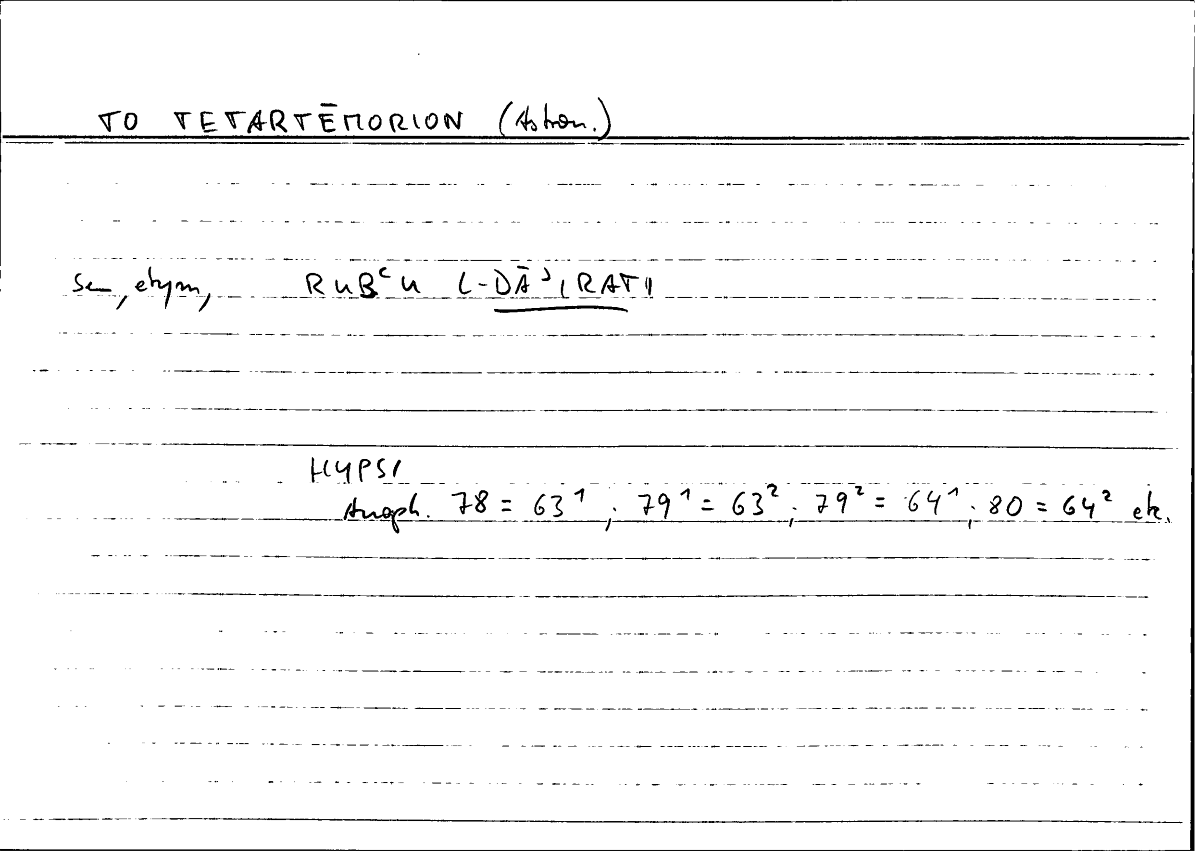 TO TETARTĒMORION (Astron.)
Sem, etym, RUBᶜU L-DĀʾIRATI
HYPSI
Anaph. 78 = 63¹ ; 79¹ = 63² ; 79² = 64¹ ; 80 = 64² etc.